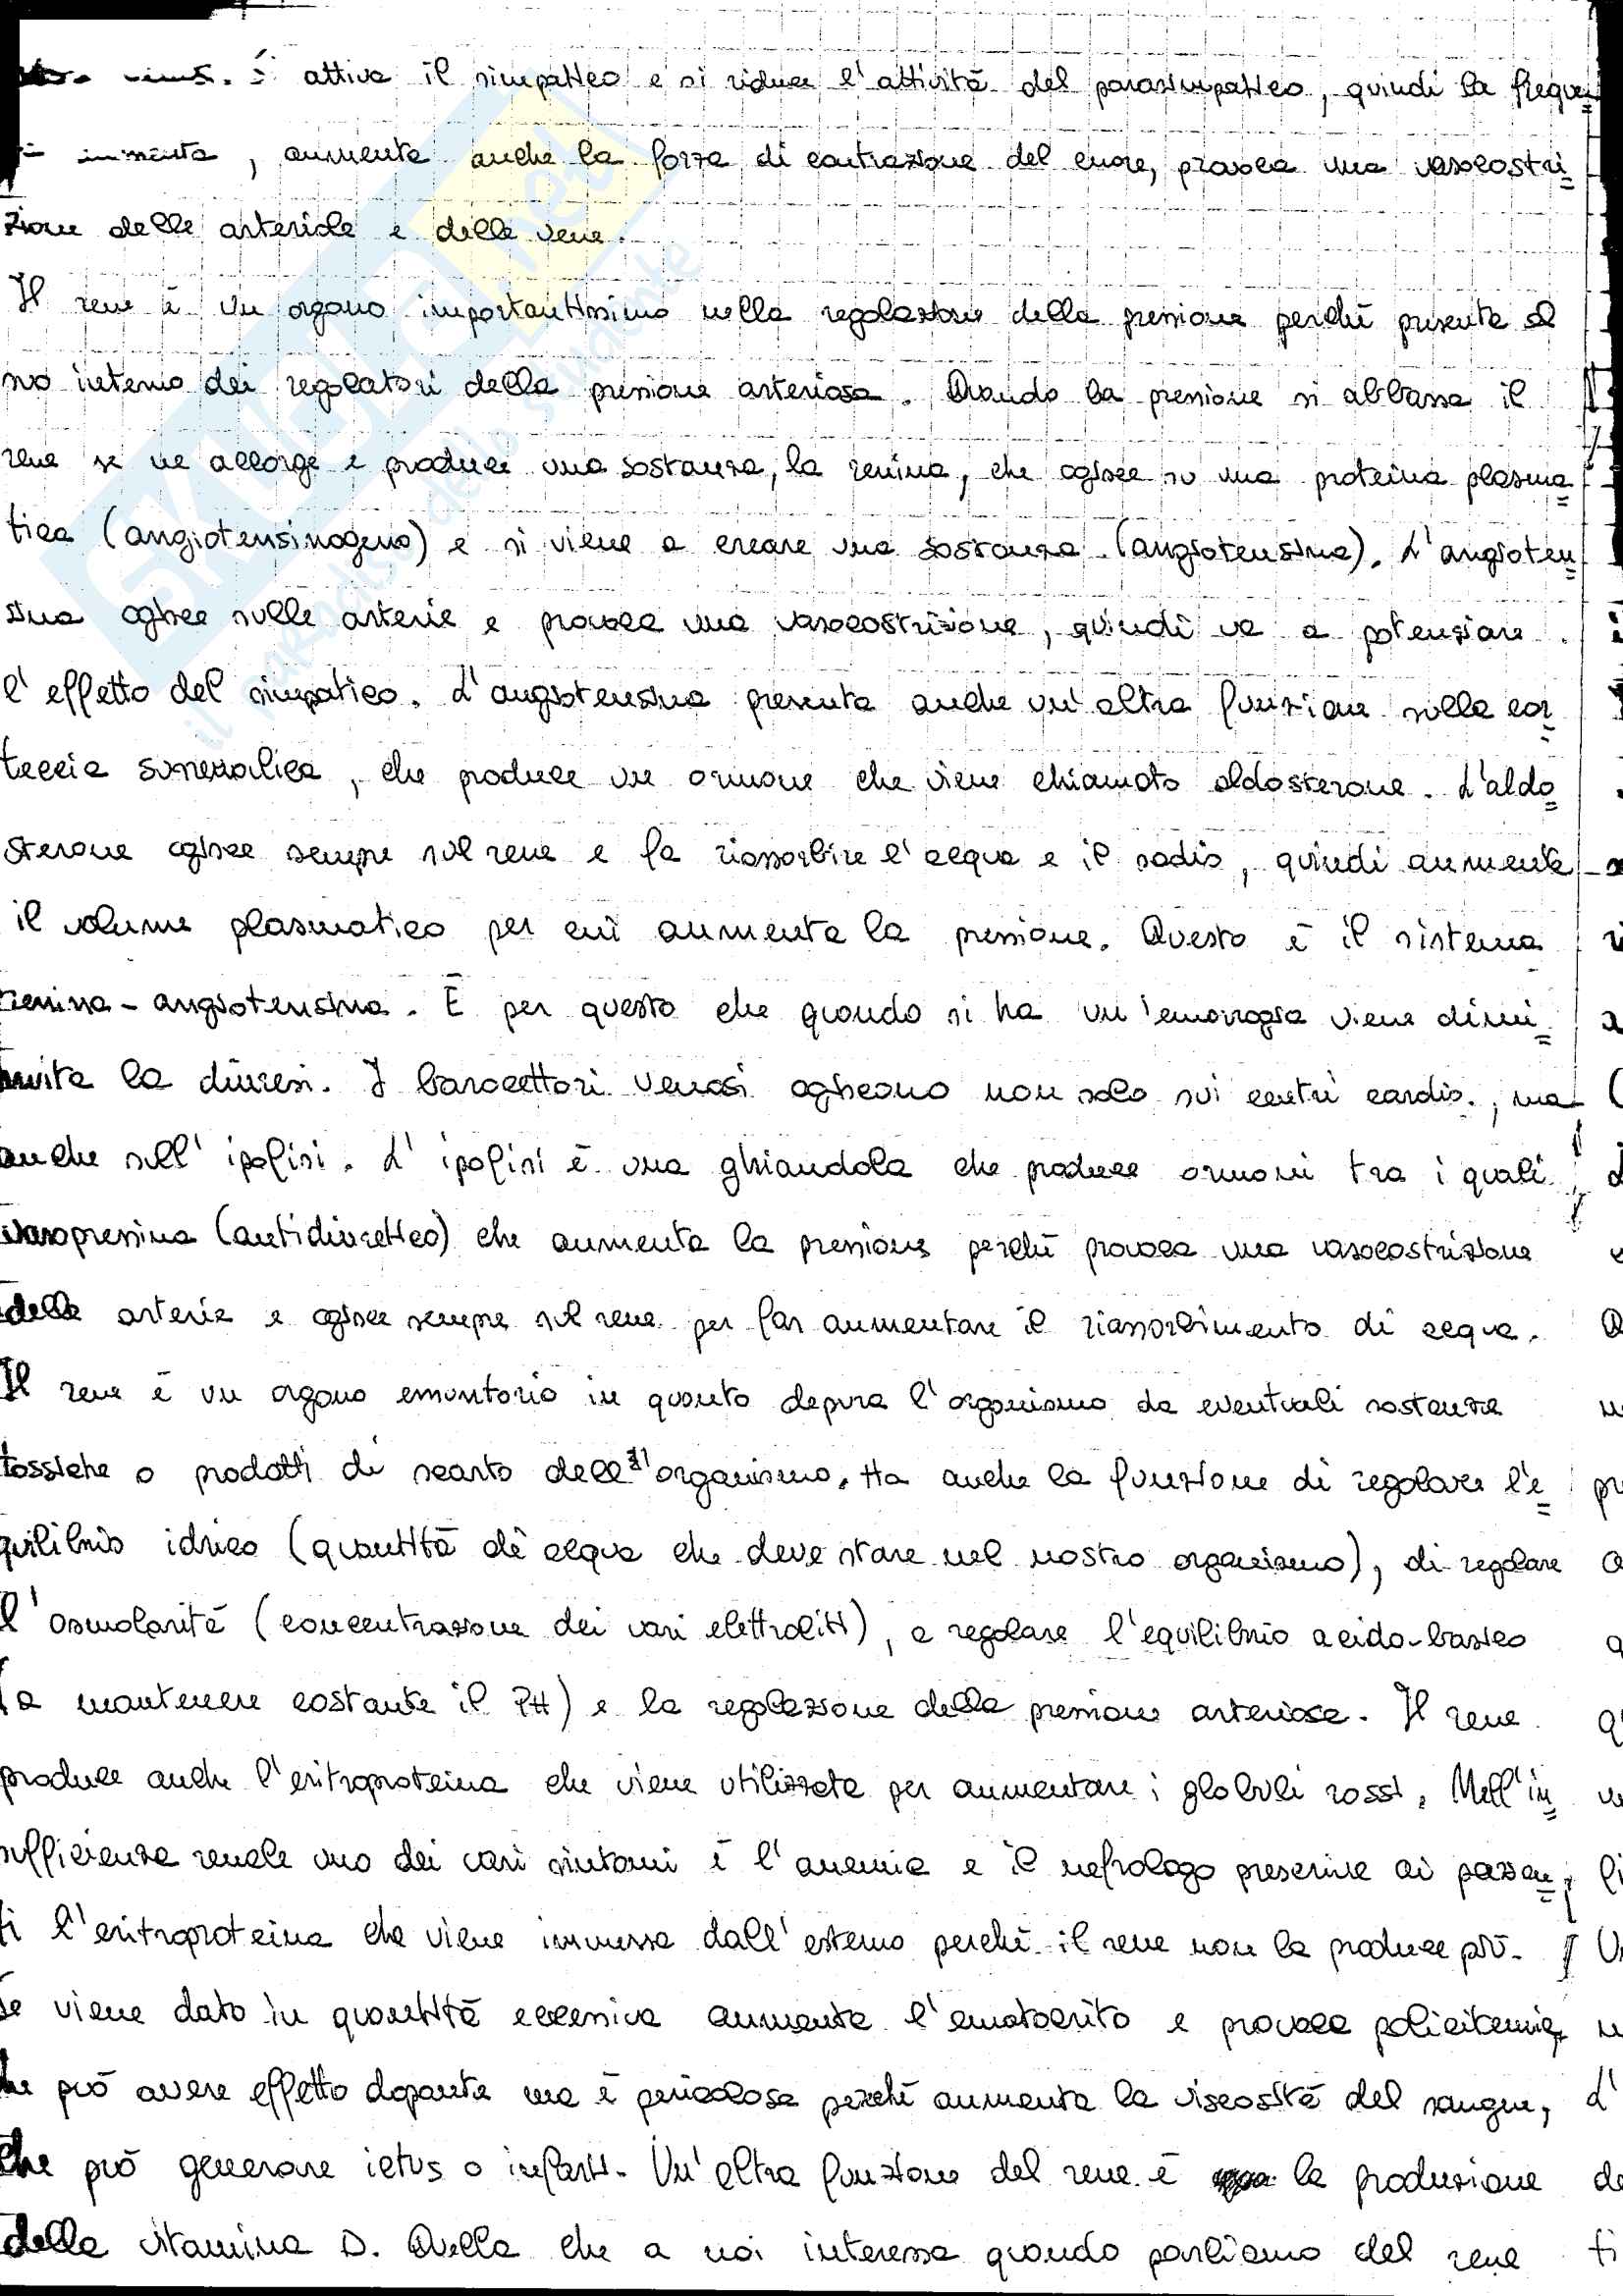 . Si attiva il simpatico e si riduce l'attività del parasimpatico, quindi la frequen
aumenta, aumenta anche la forza di contrazione del cuore, provoca una vasocostri
zione delle arteriole e delle vene.
Il rene è un organo importantissimo nella regolazione della pressione perché presenta al
suo interno dei regolatori della pressione arteriosa. Quando la pressione si abbassa il
rene se ne accorge e produce una sostanza, la renina, che agisce su una proteina plasma
tica (angiotensinogeno) e si viene a creare una sostanza (angiotensina). L'angioten
sina agisce sulle arterie e provoca una vasocostrizione, quindi va a potenziare
l'effetto del simpatico. L'angiotensina presenta anche un'altra funzione sulla cor
teccia surrenalica, che produce un ormone che viene chiamato aldosterone. L'aldo
sterone agisce sempre sul rene e fa riassorbire l'acqua e il sodio, quindi aumenta
il volume plasmatico per cui aumenta la pressione. Questo è il sistema
renina-angiotensina. È per questo che quando si ha un'emorragia viene dimi
nuita la diuresi. I barocettori venosi agiscono non solo sui centri cardio., ma
anche sull'ipofisi. L'ipofisi è una ghiandola che produce ormoni tra i quali
vasopressina (antidiuretico) che aumenta la pressione perché provoca una vasocostrizione
delle arterie e agisce sempre sul rene per far aumentare il riassorbimento di acqua.
Il rene è un organo emuntorio in quanto depura l'organismo da eventuali sostanze
tossiche o prodotti di scarto dell'organismo. Ha anche la funzione di regolare l'e
quilibrio idrico (quantità di acqua che deve stare nel nostro organismo), di regolare
l'osmolarità (concentrazione dei vari elettroliti), a regolare l'equilibrio acido-basico
(a mantenere costante il PH) e la regolazione della pressione arteriosa. Il rene
produce anche l'eritroproteina che viene utilizzata per aumentare i globuli rossi. Nell'in
sufficienza renale uno dei vari sintomi è l'anemia e il nefrologo prescrive ai pazien
ti l'eritroproteina che viene immessa dall'esterno perché il rene non la produce più.
Se viene dato in quantità eccessiva aumenta l'ematocrito e provoca policitemia,
che può avere effetto dopante ma è pericolosa perché aumenta la viscosità del sangue,
che può generare ictus o infarti. Un'altra funzione del rene è la produzione
della vitamina D. Quella che a noi interessa quando parliamo del rene